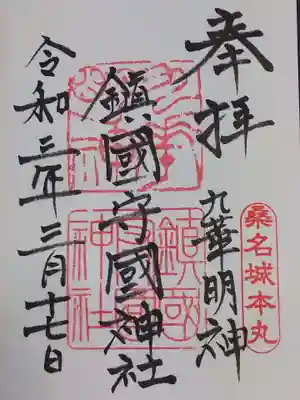 奉拝
九華明神
桑名城本丸
鎮國守國神社
令和三年三月十七日
鎮國
守國
神社